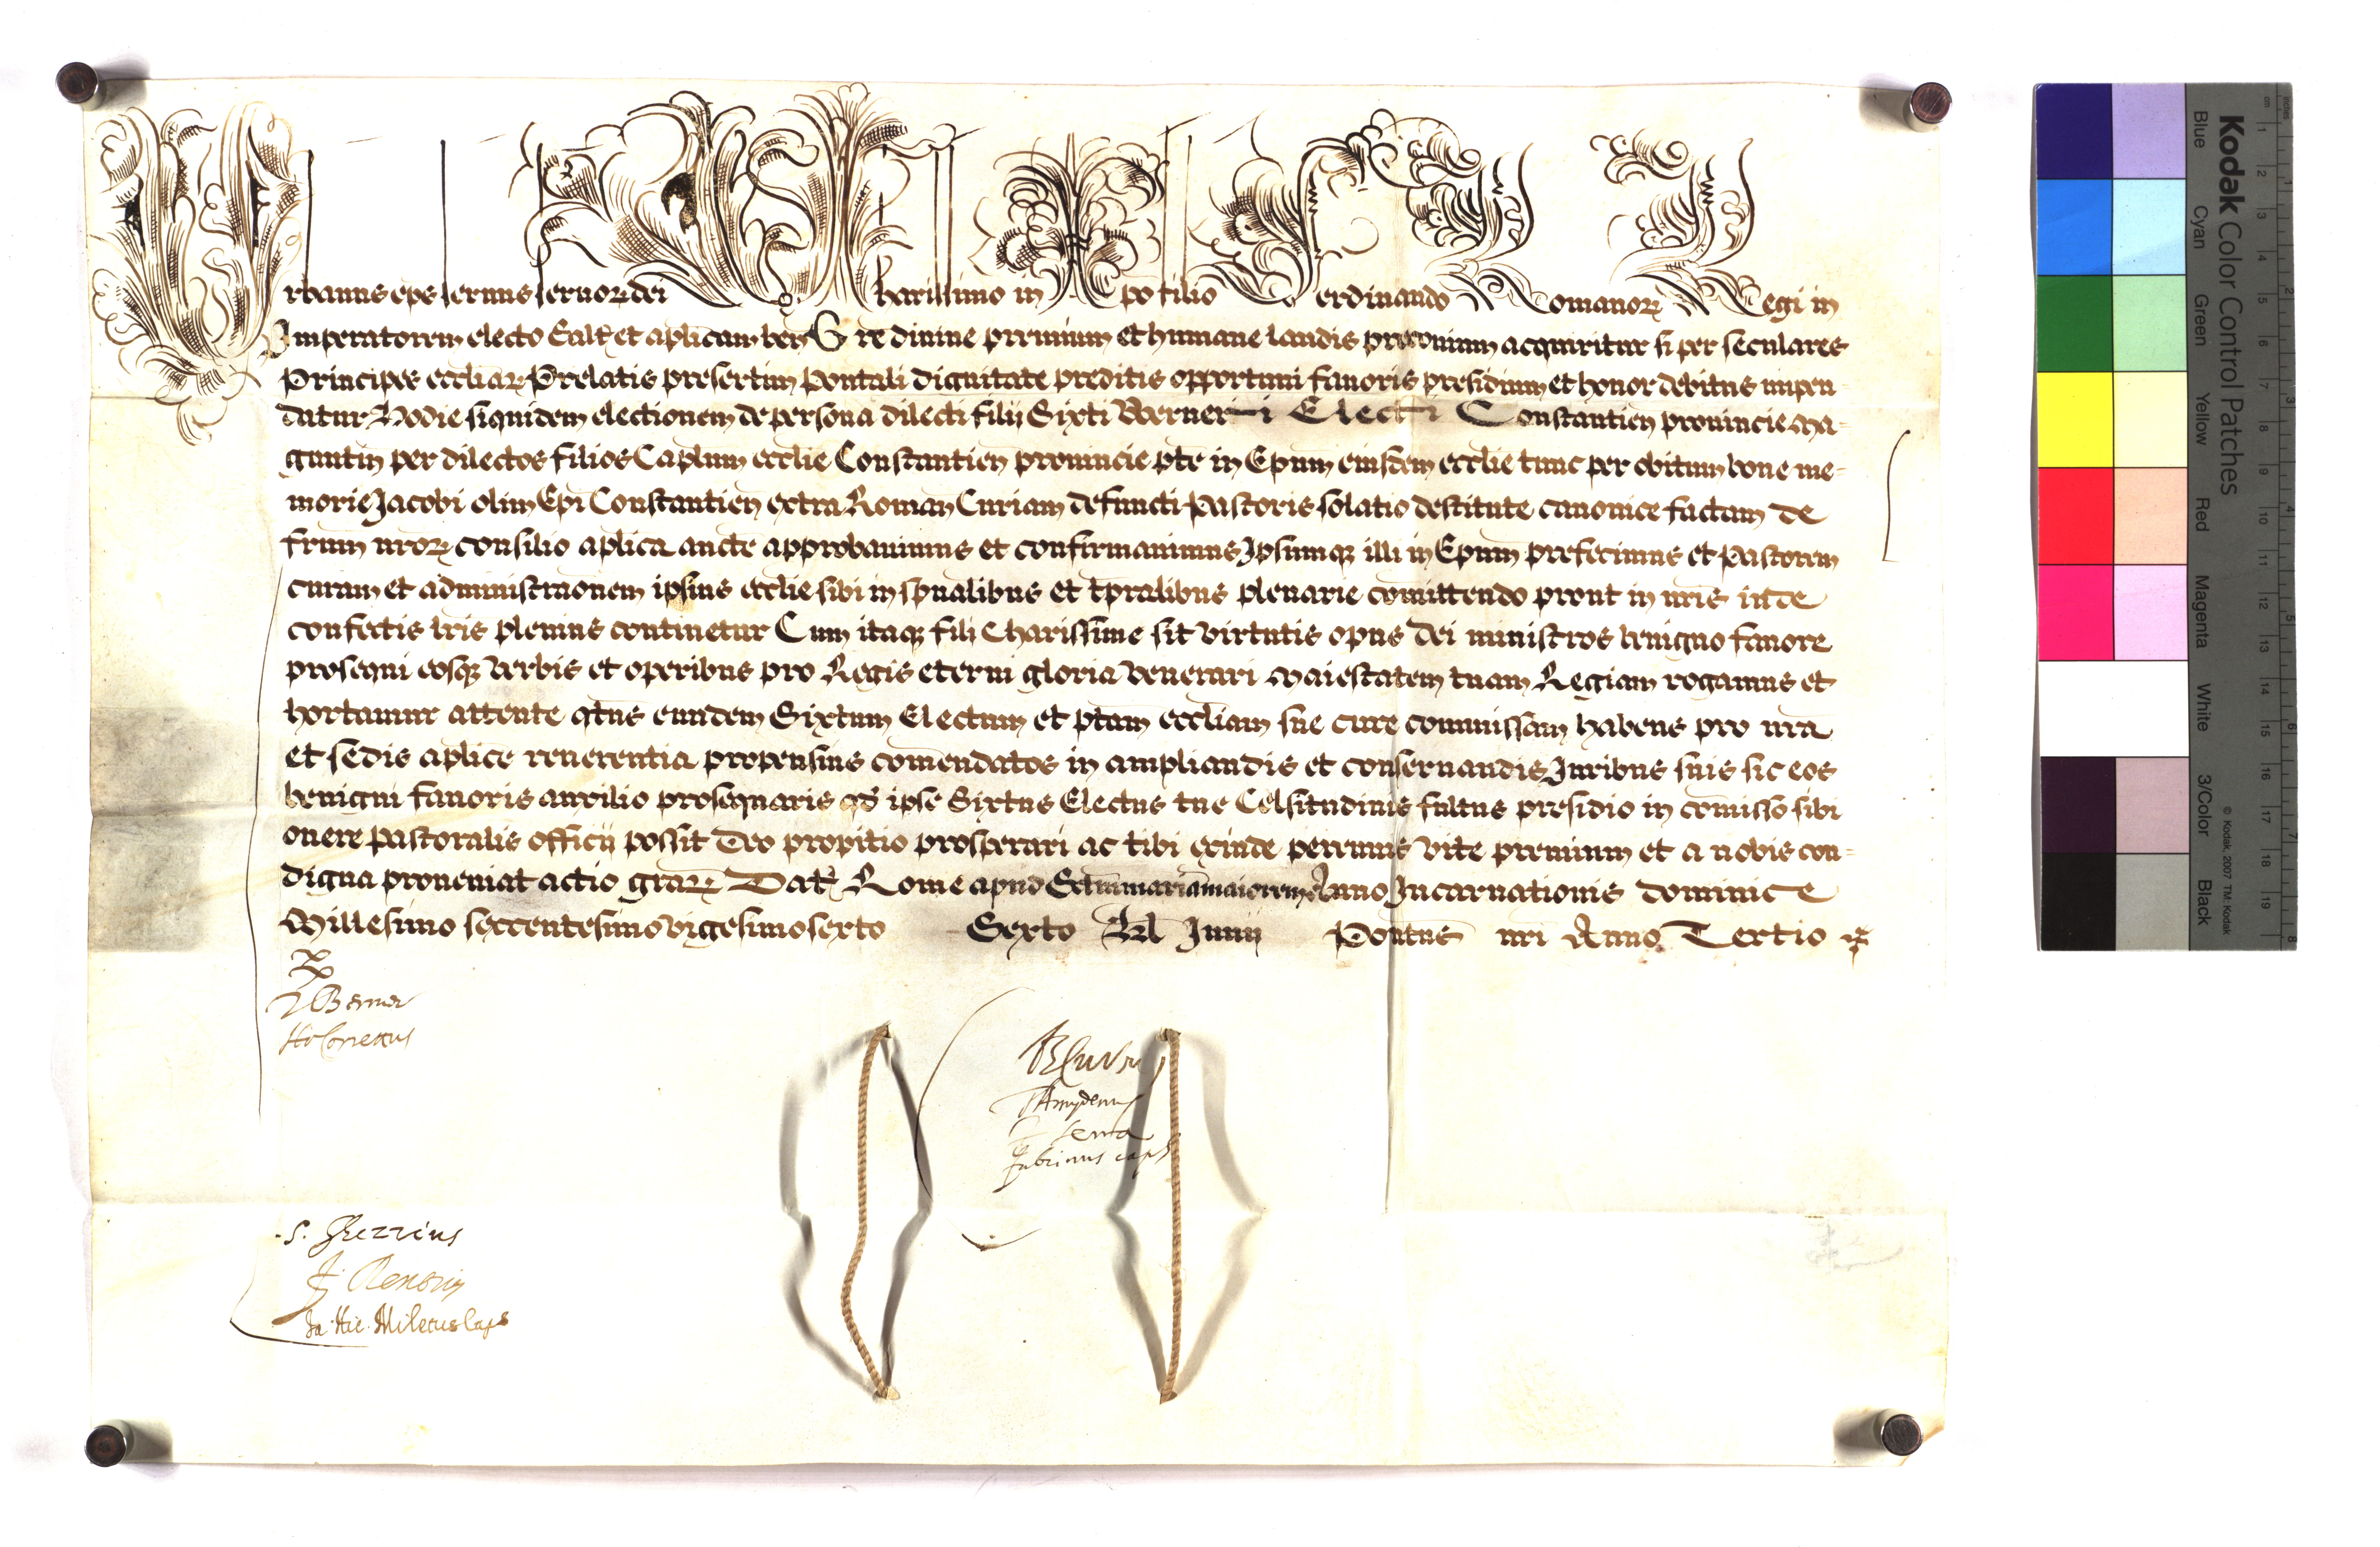 Urbanus eps servus servor dei Charissimo in Xpo filio Ferdinando Romanor Regi in
Imperatorem electo Salt et aplicam ben Gre divine premium et humane laudis preconium acquiritur si per seculares
Principes eccliar Prelatis presertim Pontali dignitate preditis opportuni favoris presidium et honor debitus impen-
datur Hodie siquidem electionem de persona dilecti filij Sixti Werneri Electi Constantien provincie Ma-
guntin per dilectos filios Caplum ecclie Constantien provincie pte in Epum eiusdem ecclie tunc per obitum bone me-
morie Jacobi olim Epi Constantien extra Roman Curiam defuncti Pastoris solatio destitute canonice factam de
frum nror consilio aplica aucte approbavimus et confirmavimus Ipsumq illi in Epum prefecimus et Pastorem
curam et administraonem ipsius ecclie sibi in spualibus et tpralibus plenarie comittendo prout in nris inde
confectis lris plenius continetur Cum itaq fili Charissime sit virtutis opus dei ministros benigno favore
prosequi eosq verbis et operibus pro Regis eterni gloria venerari Maiestatem tuam Regiam rogamus et
hortamur attente qtus eundem Sixtum Electum et ptam eccliam sue cure commissam habens pro nra
et sedis aplice reverentia propensius comendatos in ampliandis et conservandis Juribus suis sic eos
benigni favoris auxilio prosequaris qd ipse Sixtus Electus tue Celsitudinis fultus presidio in comisso sibi
onere pastoralis officij possit Deo propitio prosperari ac tibi exinde perennis vite premium et a nobis con-
digna proveniat actio grar Dat Rome apud Sctam mariam maiorem Anno Incarnationis dominice
Millesimo sexcentesimo vigesimo sexto Sexto Kl Junij Pontus nri Anno Tertio
S. Ghezzius
Ja. Hie. Miletus Caps
Kodak Color Control Patches
Blue Cyan Green Yellow Red Magenta White 3/Color Black
© Kodak, 2007 TM: Kodak
cm 1 2 3 4 5 6 7 8 9 10 11 12 13 14 15 16 17 18 19
inches 1 2 3 4 5 6 7 8